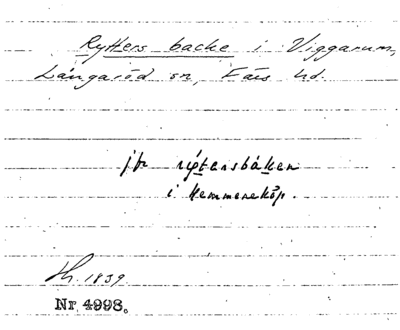 Rytters backe i Viggarum,
Långaröd sn, Färs hd.
jfr ryttersbåken
i Hemmeneköp.
Hh. 1839
Nr 4998.